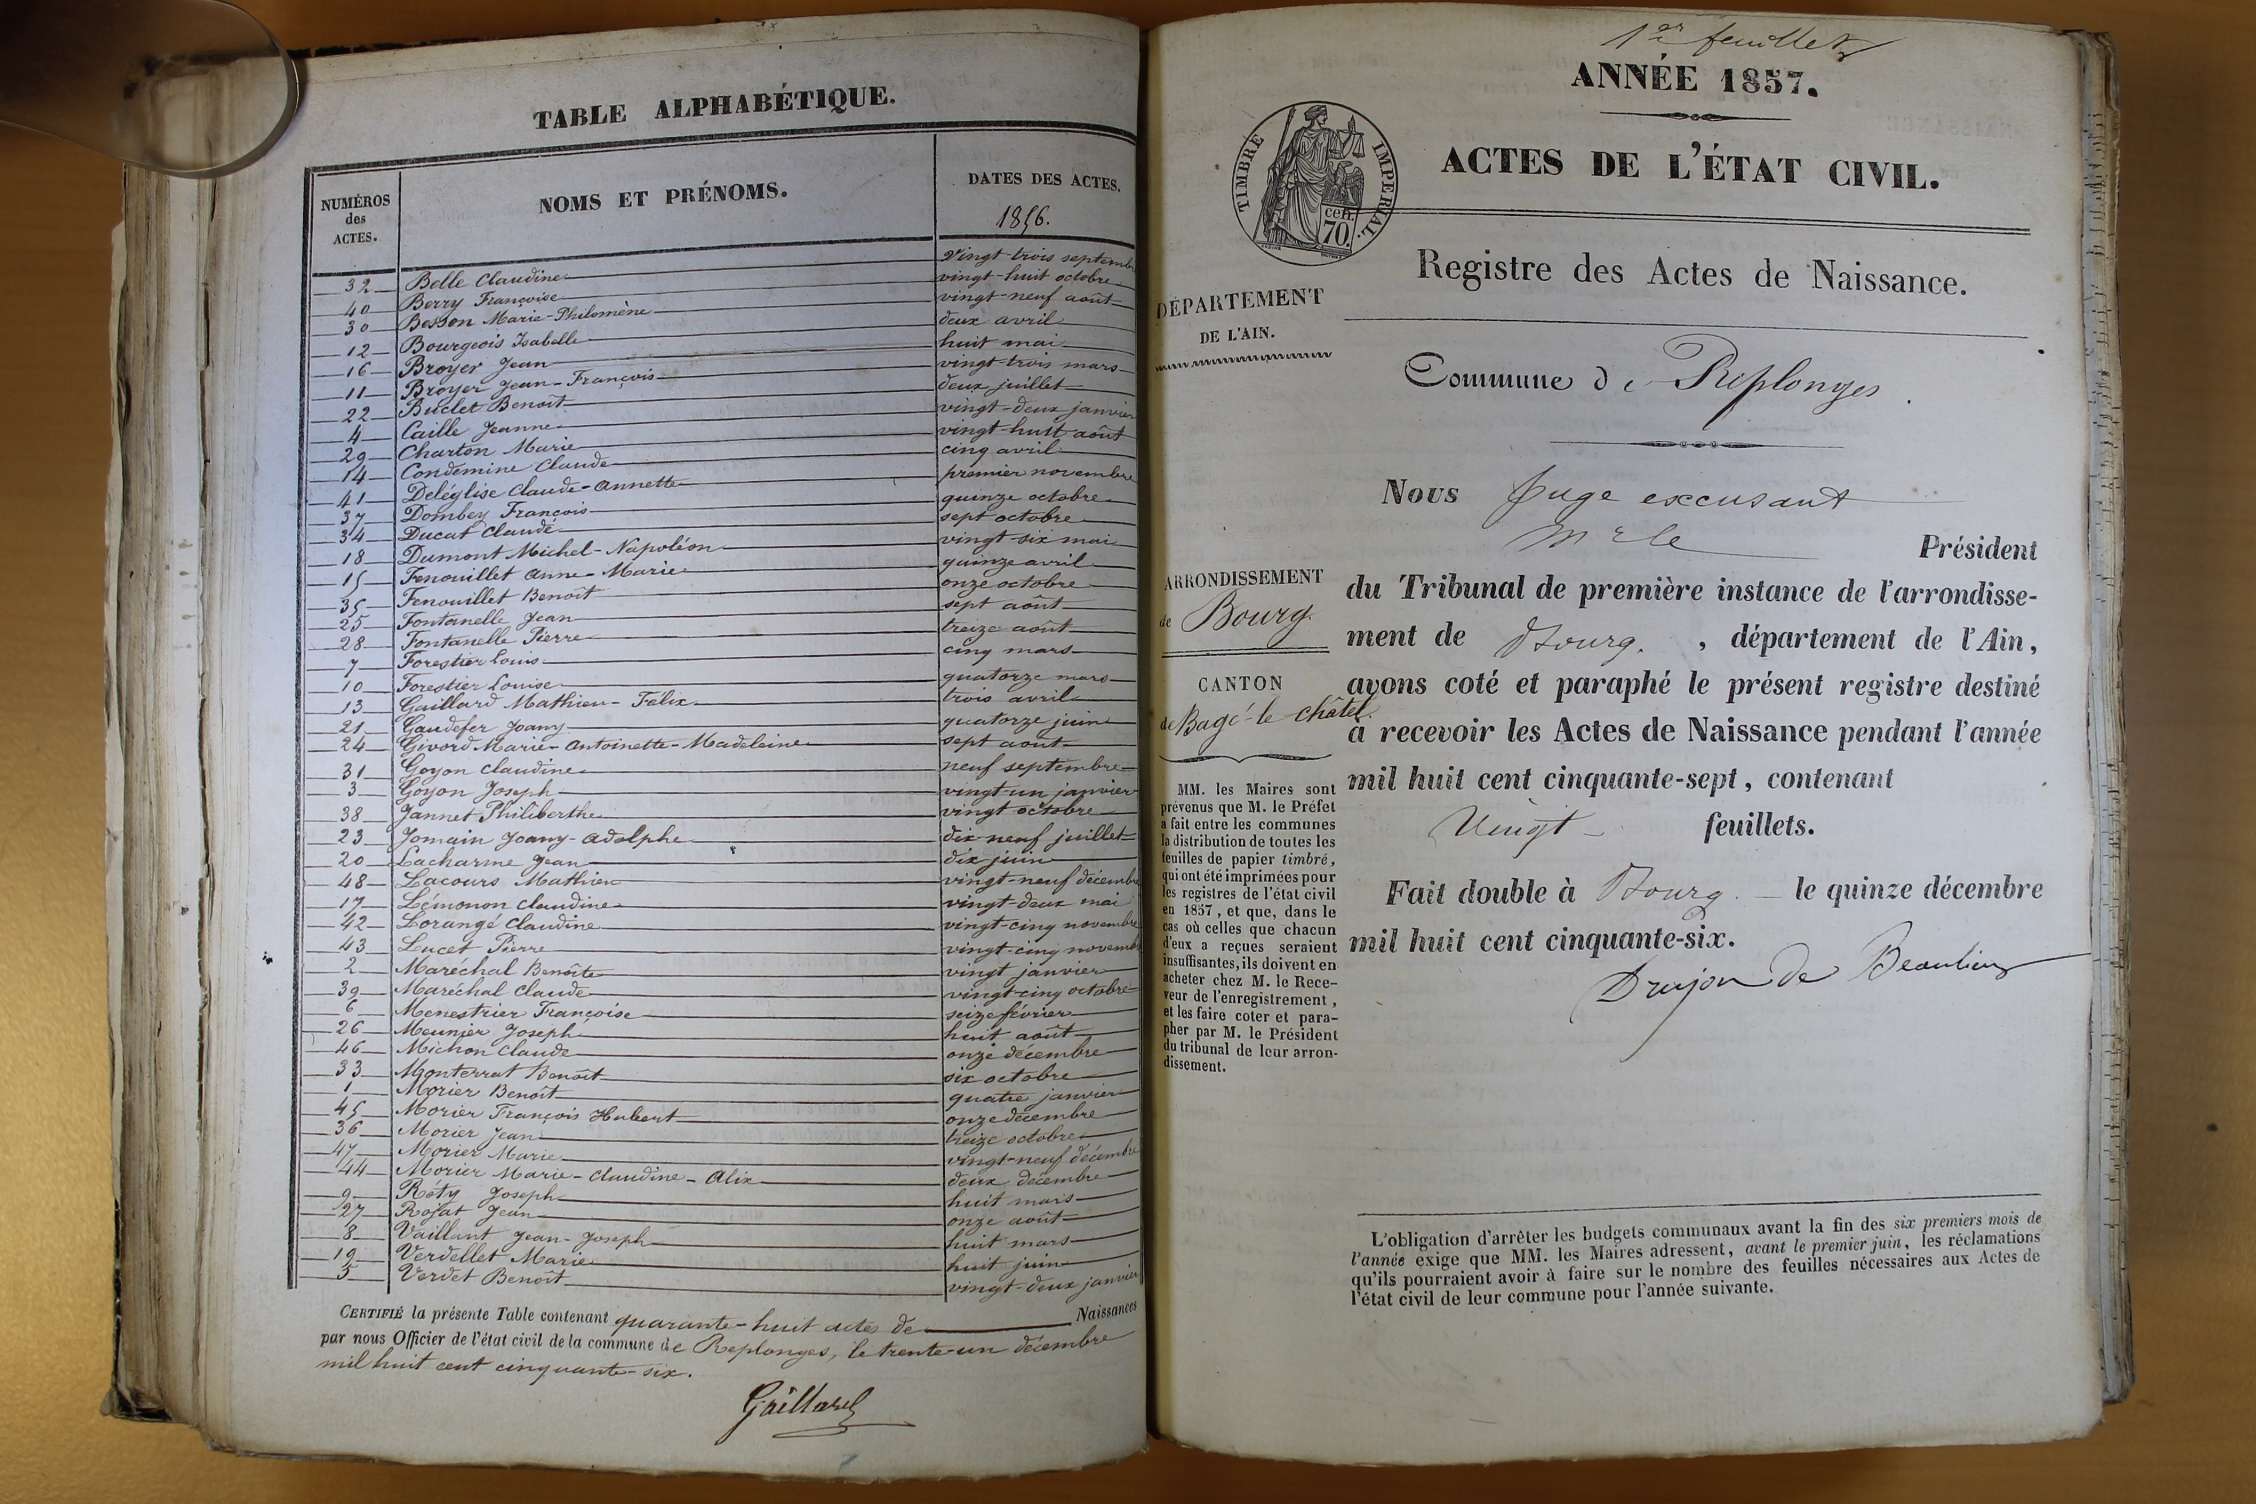 TABLE ALPHABÉTIQUE.
NUMÉROS des ACTES.
NOMS ET PRÉNOMS.
DATES DES ACTES.
1856.
32 Belle Claudine vingt-trois septembre
40 Berry Françoise vingt-huit octobre
30 Besson Marie-Philomène vingt-neuf août
12 Bourgeois Isabelle deux avril
16 Broyer Jean huit mai
11 Broyer Jean-François vingt-trois mars
22 Buclet Benoît deux juillet
4 Caille Jeanne vingt-deux janvier
29 Charton Marie vingt-huit août
14 Condemine Claude cinq avril
41 Deléglise Claude-Annette premier novembre
37 Dombey François quinze octobre
34 Ducat Claude sept octobre
18 Dumont Michel-Napoléon vingt-six mai
15 Fenouillet Anne-Marie quinze avril
35 Fenouillet Benoît onze octobre
25 Fontanelle Jean sept août
28 Fontanelle Pierre treize août
7 Forestier Louis cinq mars
10 Forestier Louise quatorze mars
13 Gaillard Mathieu-Félix trois avril
21 Gaudefer Joany quatorze juin
24 Givord Marie-Antoinette-Madeleine sept août
31 Goyon Claudine neuf septembre
3 Goyon Joseph vingt un janvier
38 Jannet Philiberthe vingt octobre
23 Jomain Joany-Adolphe dix neuf juillet
20 Lacharme Jean dix juin
48 Lacours Mathieu vingt-neuf décembre
17 Lemonon Claudine vingt-deux mai
42 Lorangé Claudine vingt-cinq novembre
43 Lucet Pierre vingt-cinq novemb
2 Maréchal Benoîte vingt janvier
39 Maréchal Claude vingt-cinq octobre
6 Menestrier Françoise seize février
26 Meunier Joseph huit août
46 Michon Claude onze décembre
33 Monterrat Benoît six octobre
1 Morier Benoît quatre janvier
45 Morier François Hubert onze décembre
36 Morier Jean treize octobre
47 Morier Marie vingt-neuf décembre
44 Morier Marie-Claudine-Alix deux décembre
9 Réty Joseph huit mars
27 Rofat Jean onze août
8 Vaillant Jean-Joseph huit mars
19 Verdellet Marie huit juin
5 Verdet Benoît vingt-deux janvier
CERTIFIÉ la présente Table contenant quarante-huit actes de Naissances
par nous Officier de l'état civil de la commune de Replonges, le trente-un décembre
mil huit cent cinquante-six.
Gaillard
1er feuillet
ANNÉE 1857.
TIMBRE IMPERIAL.
cen. 70.
ACTES DE L'ÉTAT CIVIL.
Registre des Actes de Naissance.
DÉPARTEMENT
DE L'AIN.
Commune de Replonges
ARRONDISSEMENT
de Bourg.
CANTON
de Bagé-le-Châtel.
MM. les Maires sont
prévenus que M. le Préfet
a fait entre les communes
la distribution de toutes les
feuilles de papier timbré,
qui ont été imprimées pour
les registres de l'état civil
en 1857, et que, dans le
cas où celles que chacun
d'eux a reçues seraient
insuffisantes, ils doivent en
acheter chez M. le Rece-
veur de l'enregistrement,
et les faire coter et para-
pher par M. le Président
du tribunal de leur arron-
dissement.
Nous Juge excusant
Mr le Président
du Tribunal de première instance de l'arrondisse-
ment de Bourg. , département de l'Ain,
avons coté et paraphé le présent registre destiné
à recevoir les Actes de Naissance pendant l'année
mil huit cent cinquante-sept, contenant
Vingt feuillets.
Fait double à Bourg. le quinze décembre
mil huit cent cinquante-six.
Drujon de Beaulieu
L'obligation d'arrêter les budgets communaux avant la fin des six premiers mois de
l'année exige que MM. les Maires adressent, avant le premier juin, les réclamations
qu'ils pourraient avoir à faire sur le nombre des feuilles nécessaires aux Actes de
l'état civil de leur commune pour l'année suivante.